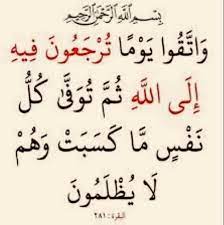 بِسْمِ اللَّهِ الرَّحْمَنِ الرَّحِيمِ
وَاتَّقُوا يَوْمًا تُرْجَعُونَ فِيهِ
إِلَى اللَّهِ ثُمَّ تُوَفَّىٰ كُلُّ
نَفْسٍ مَّا كَسَبَتْ وَهُمْ
لَا يُظْلَمُونَ
البقرة : ٢٨١